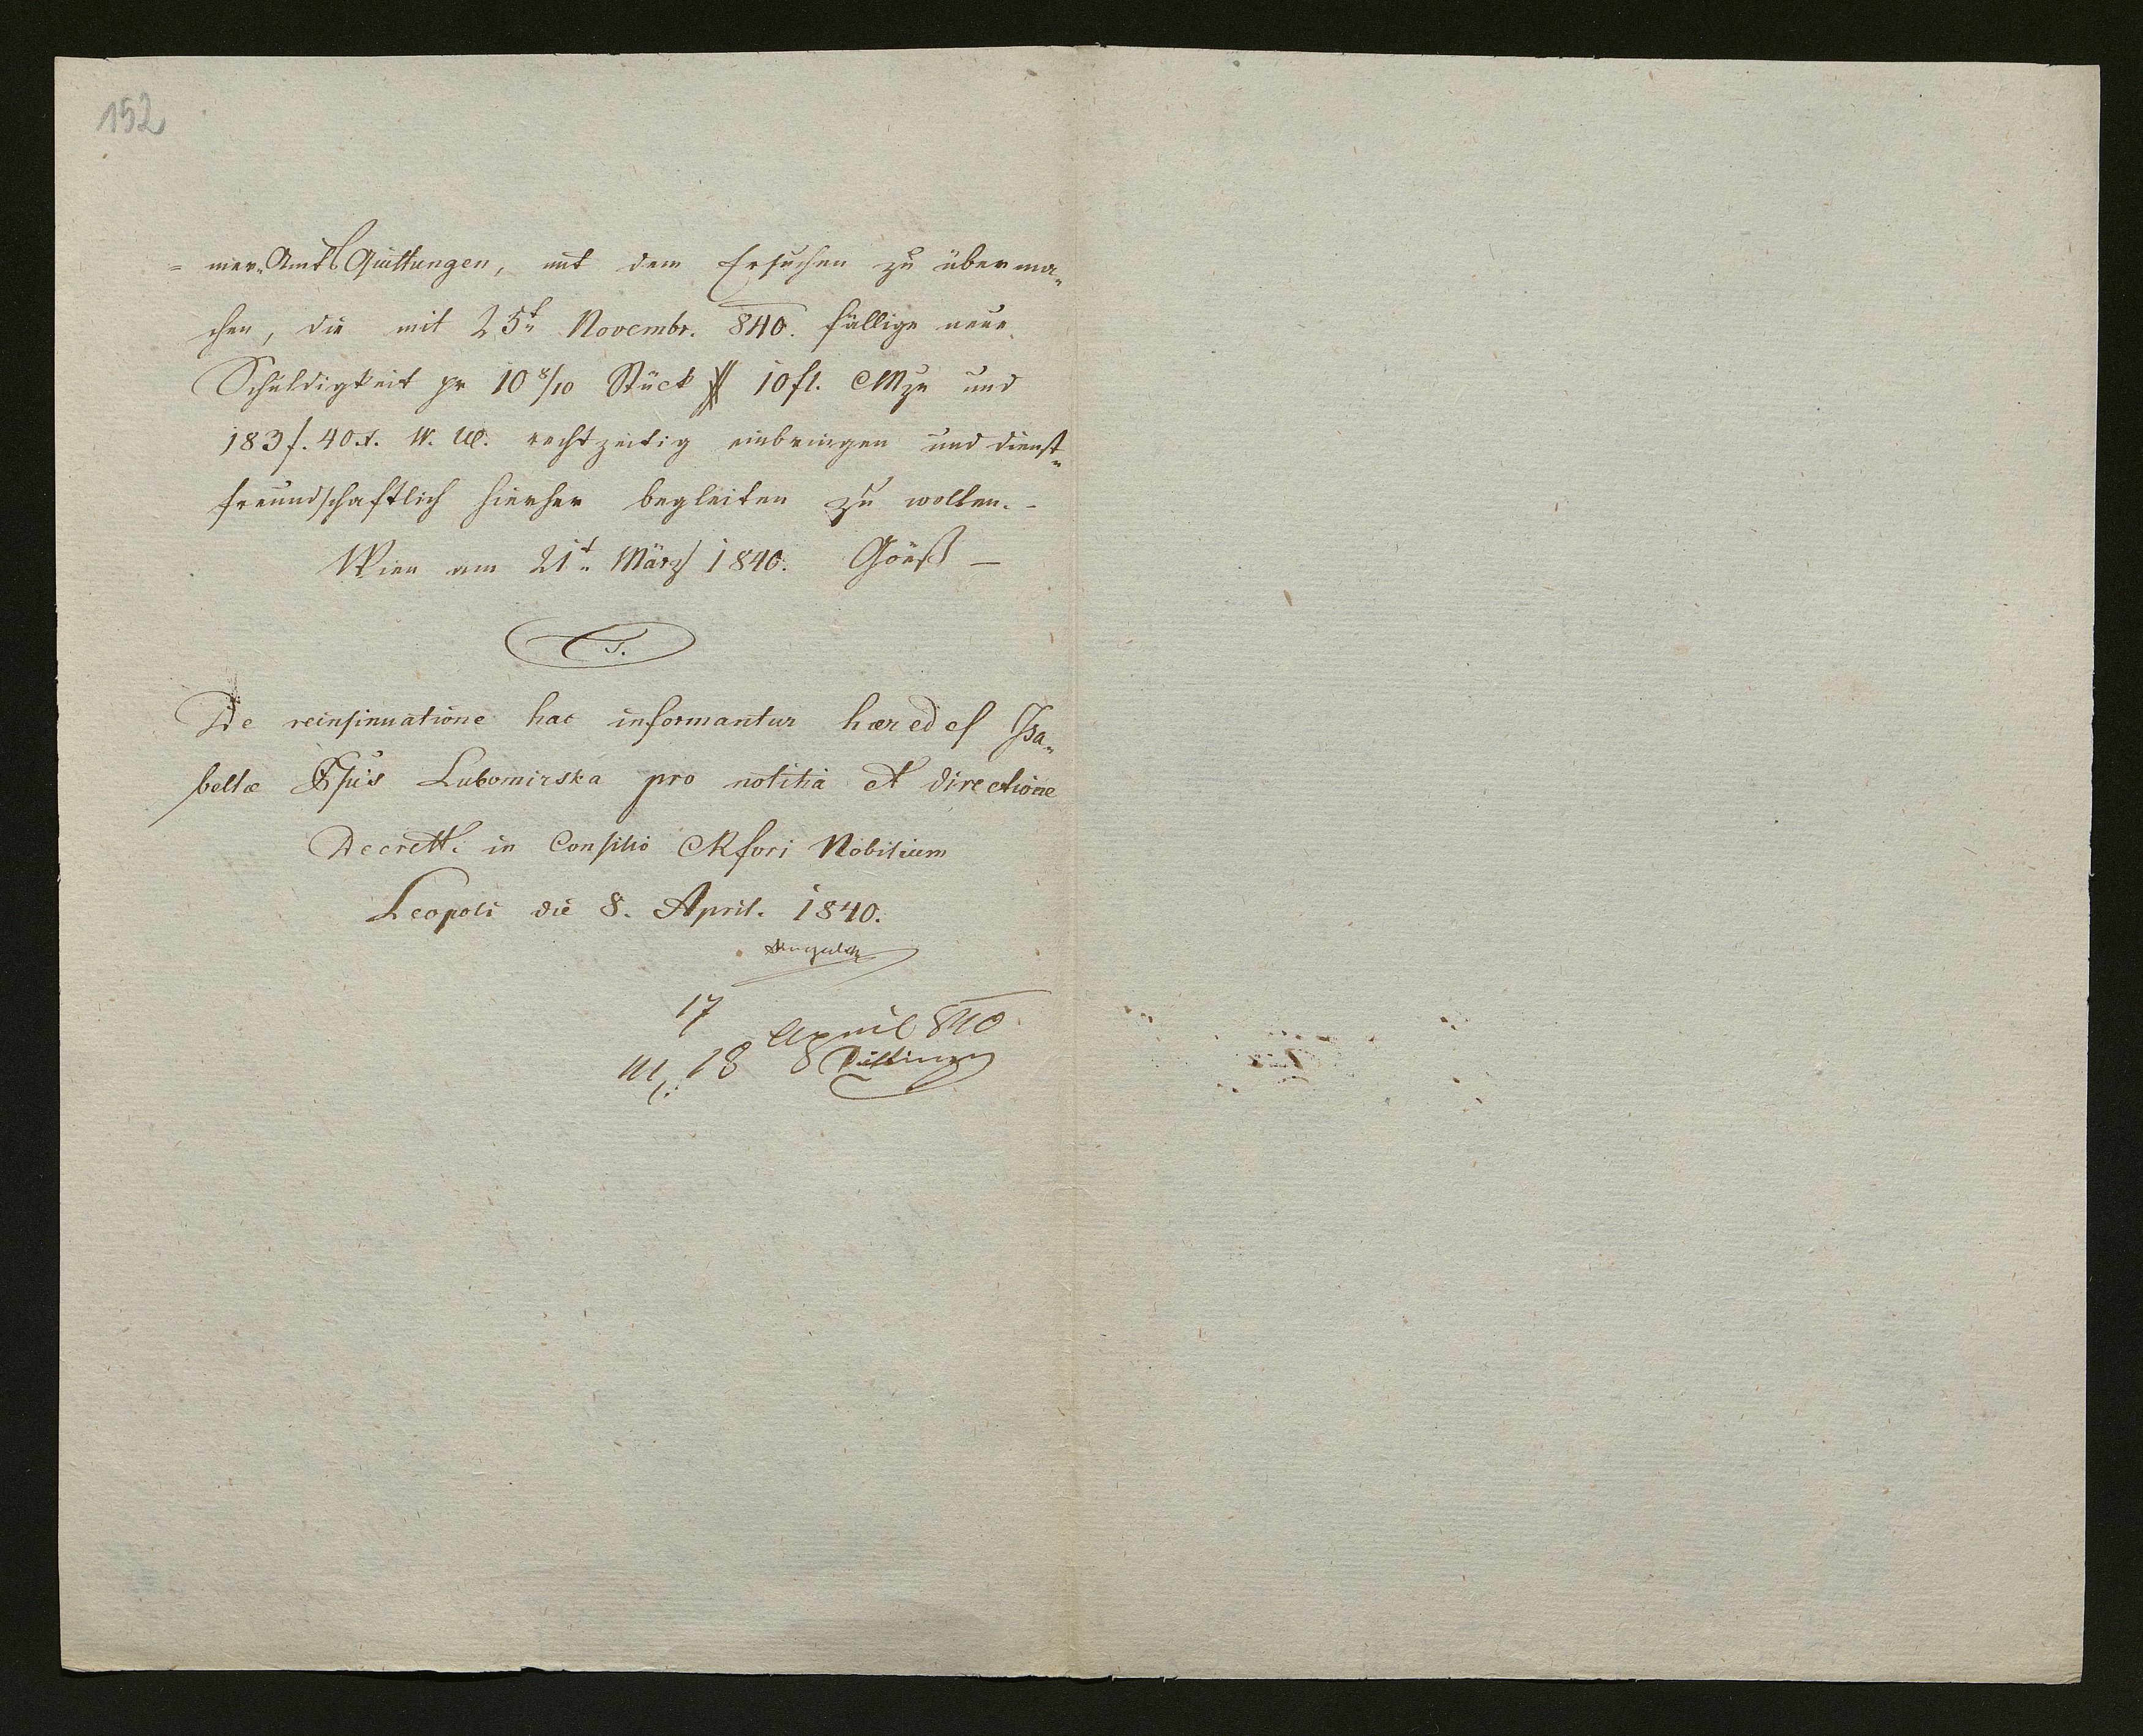 152
= mer„Amts Quittungen, mit dem Ersuchen zu überma„
chen, die mit 25t„ Novembr. 840. fällige neue
Schuldigkeit pr 10 8/10 Stück # 10 fl. CMze und
183 f. 40 x. W. W. rechtzeitig einbringen und dienst„
freundschaftlich hierher begleiten zu wollen. -
Wien am 21t„ März 1840. Göeß —
De reinsinuatione hac informantur hæredes Isa„
bellæ Lubomirska pro notitia et directione
Decrett. in Consilio CRfori Nobilium
Leopoli die 8. April. 1840.
17
April 840
18